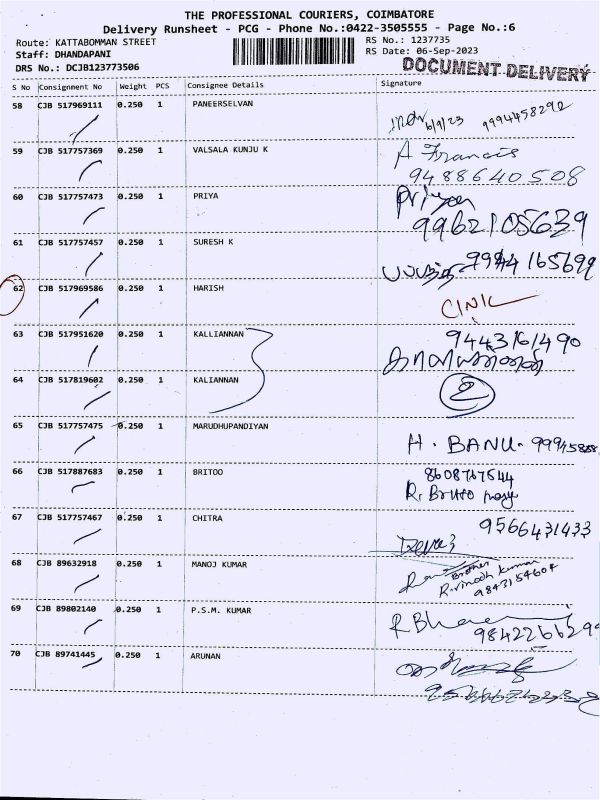 THE PROFESSIONAL COURIERS, COIMBATORE
Delivery Runsheet - PCG - Phone No.:0422-3505555 - Page No.:6
Route: KATTABOMMAN STREET
Staff: DHANDAPANI
DRS No.: DCJB123773506
RS No.: 1237735
RS Date: 06-Sep-2023
DOCUMENT DELIVERY
S No Consignment No Weight PCS Consignee Details Signature
58 CJB 517969111 0.250 1 PANEERSELVAN
6/9/23 9994458292
59 CJB 517757369 0.250 1 VALSALA KUNJU K
A Francis
9488640508
60 CJB 517757473 0.250 1 PRIYA
Priya
9962105639
61 CJB 517757457 0.250 1 SURESH K
9994165699
62 CJB 517969586 0.250 1 HARISH
63 CJB 517951620 0.250 1 KALLIANNAN
9443161490
64 CJB 517819602 0.250 1 KALIANNAN
2
65 CJB 517757475 0.250 1 MARUDHUPANDIYAN
H. BANU.
66 CJB 517887683 0.250 1 BRITOO
8608767544
R. Britto
67 CJB 517757467 0.250 1 CHITRA
9566431433
68 CJB 89632918 0.250 1 MANOJ KUMAR
Brother
R. vinoth kumar
9843154604
69 CJB 89802140 0.250 1 P.S.M. KUMAR
70 CJB 89741445 0.250 1 ARUNAN